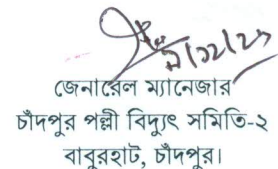 জেনারেল ম্যানেজার
চাঁদপুর পল্লী বিদ্যুৎ সমিতি-২
বাবুরহাট, চাঁদপুর।